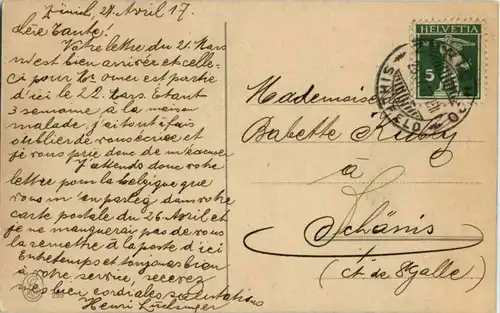 Zürich, 24. Avril 17.
Chère Tante.
Votre lettre du 21. Mars
m'est bien arrivée et celle-
ci pour Mr. Omer est partie
d'ici le 22. Mars. Etant
3 semaine à la maison
malade, j'ai tout à fais
oublier de vous écrire et
je vous prie donc de m'excuser
J'attends donc votre
lettre pour la Belgique que
vous m'en parlez dans votre
carte postale du 26 Avril et
je ne manquerai pas de vous
la remettre à la poste d'ici
Entretemps et toujours bien
à votre service, recevez
mes bien cordiales salutations
Henri Luchsinger
HELVETIA
5
Mademoiselle
Babette Kubly
à
Schänis
(Ct. de St Galle)